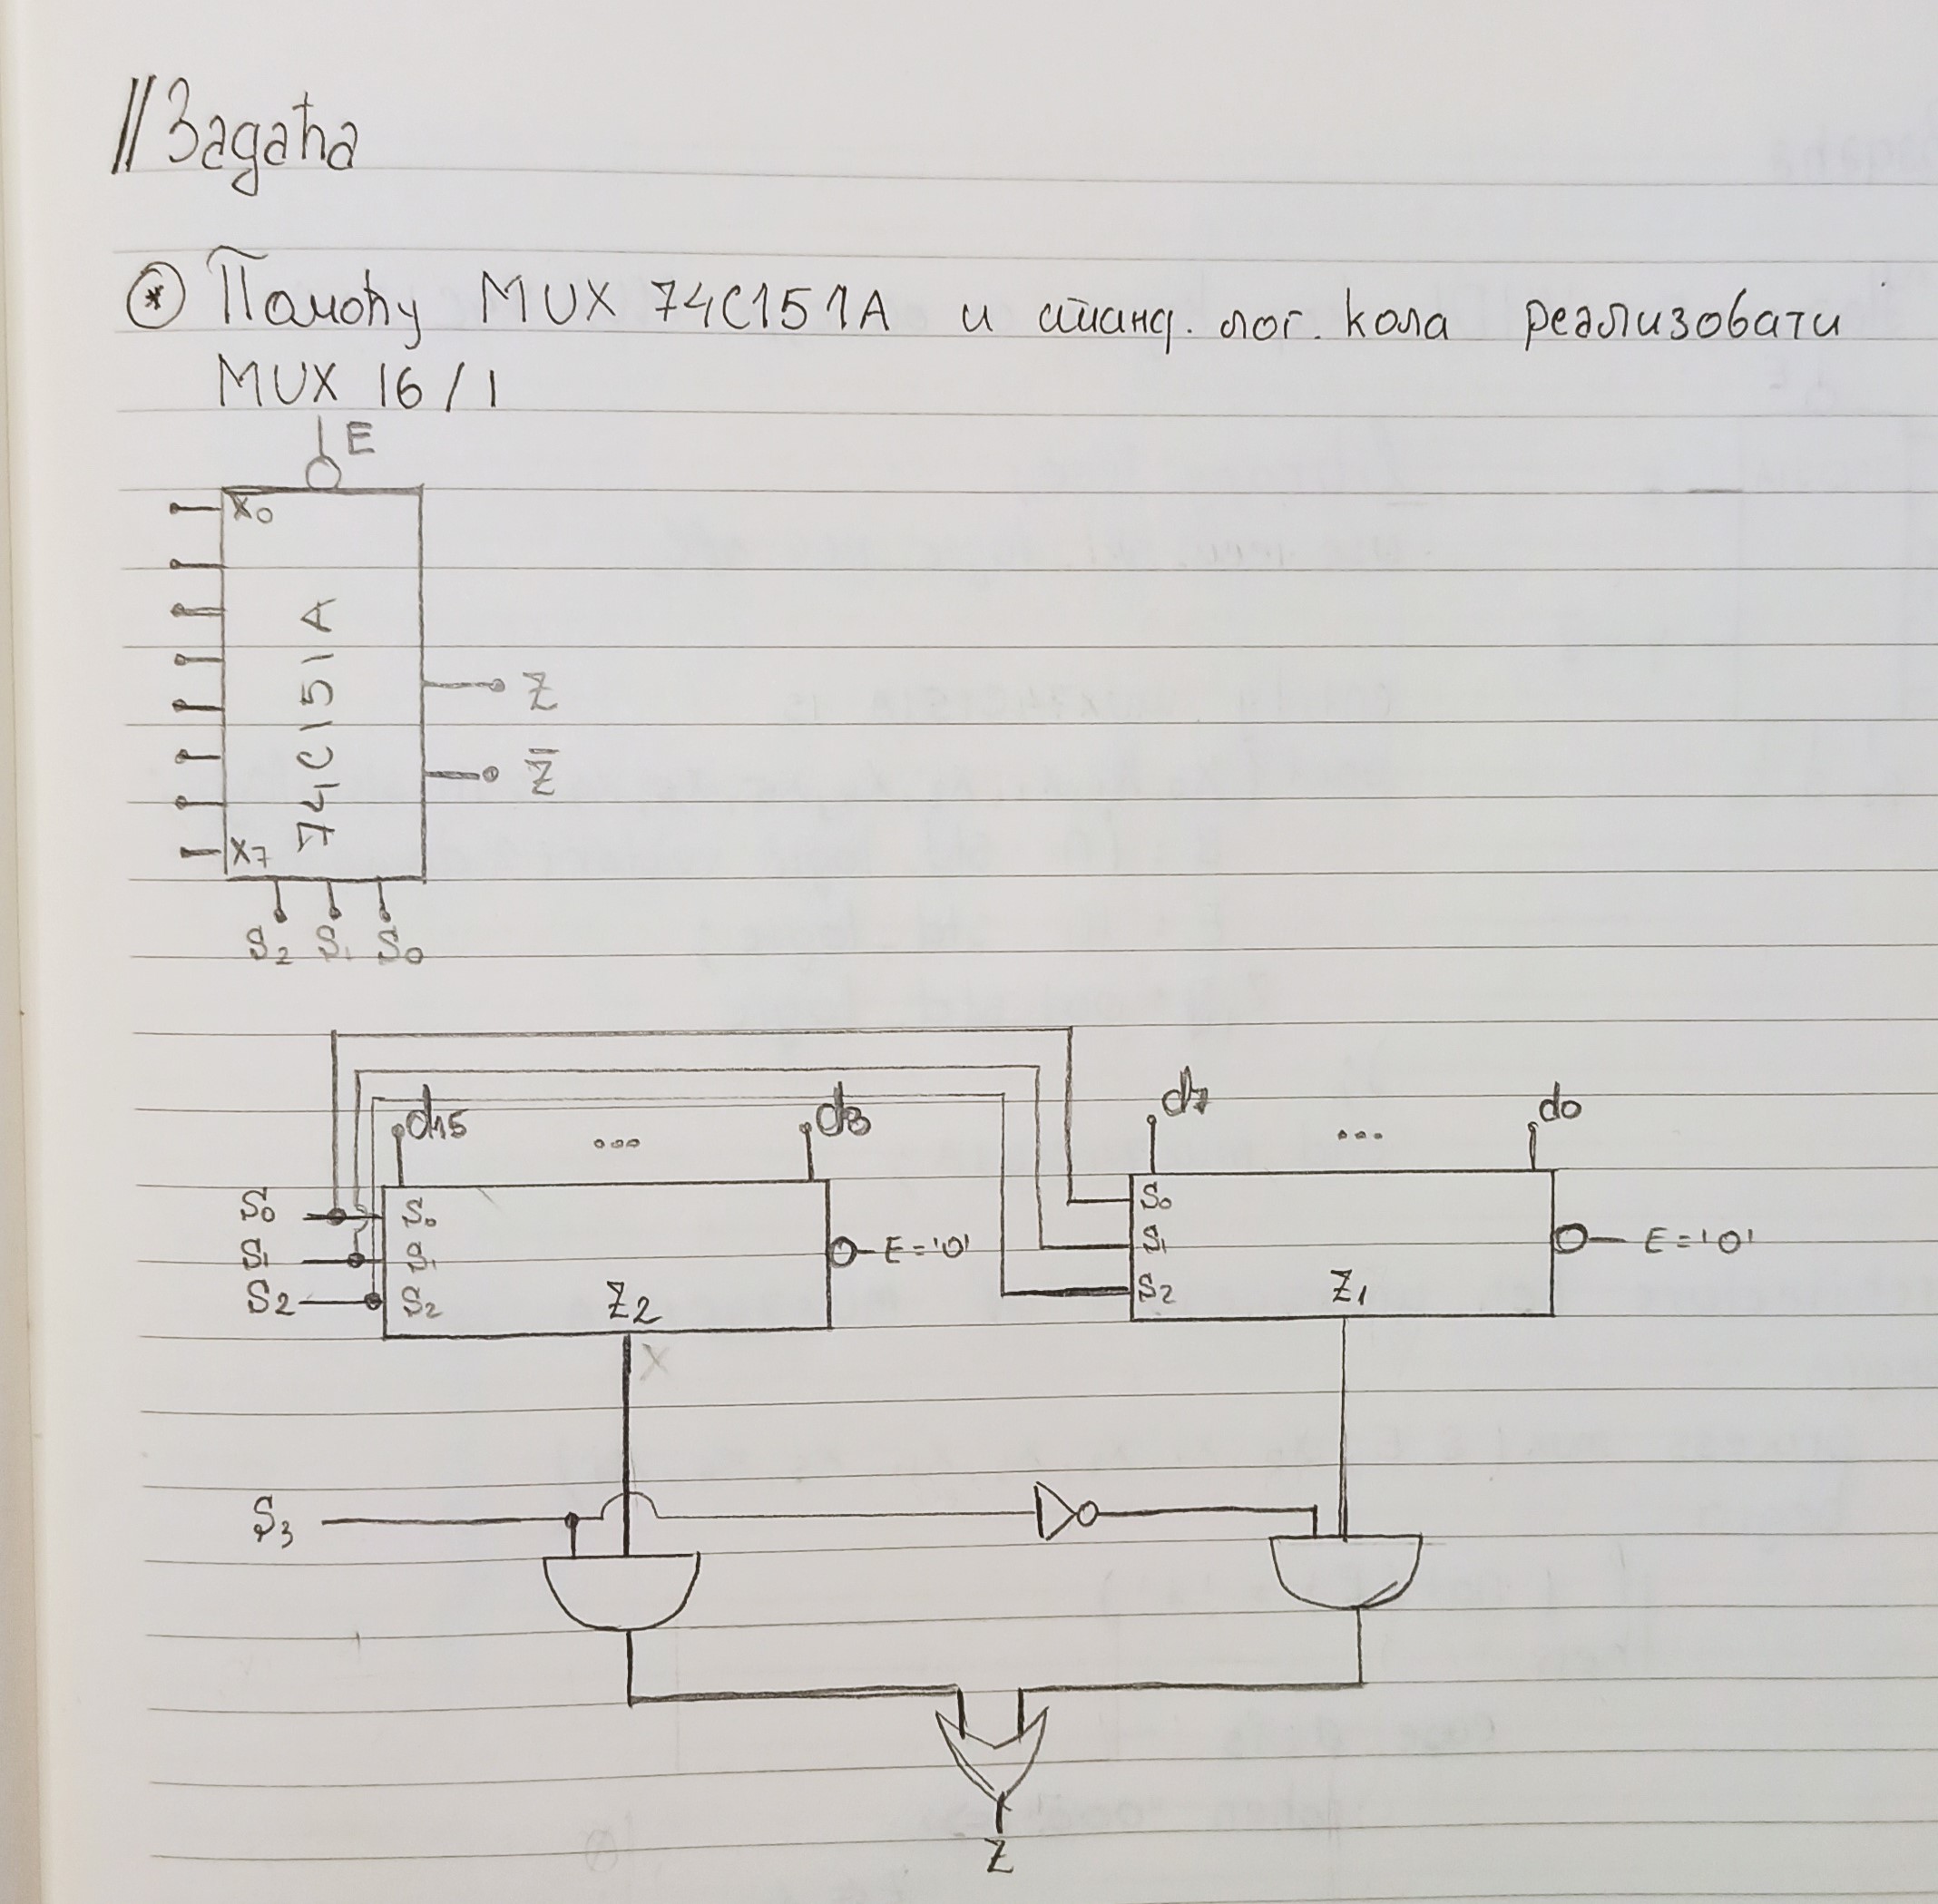 // Задаћа
* Помоћу MUX 74C151A и станд. лог. кола реализовати
MUX 16/1
E
X0
74C151A
Z
Z̅
X7
S2 S1 S0
d15 ... d8 d7 ... d0
S0 S0 S0
S1 S1 E='0' S1 E='0'
S2 S2 Z2 S2 Z1
X
S3
Z